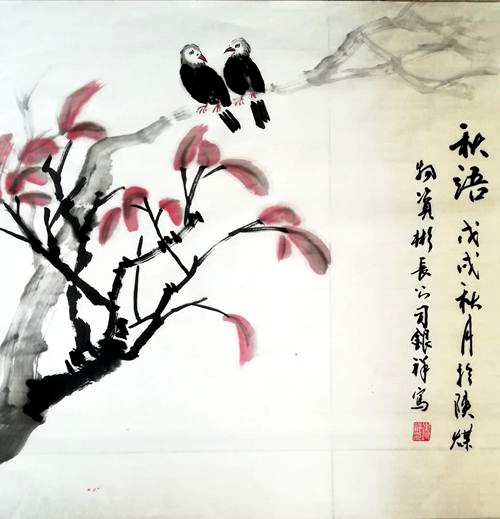 秋語 戊戌秋月於陕煤
物資彬長公司銀祥寫